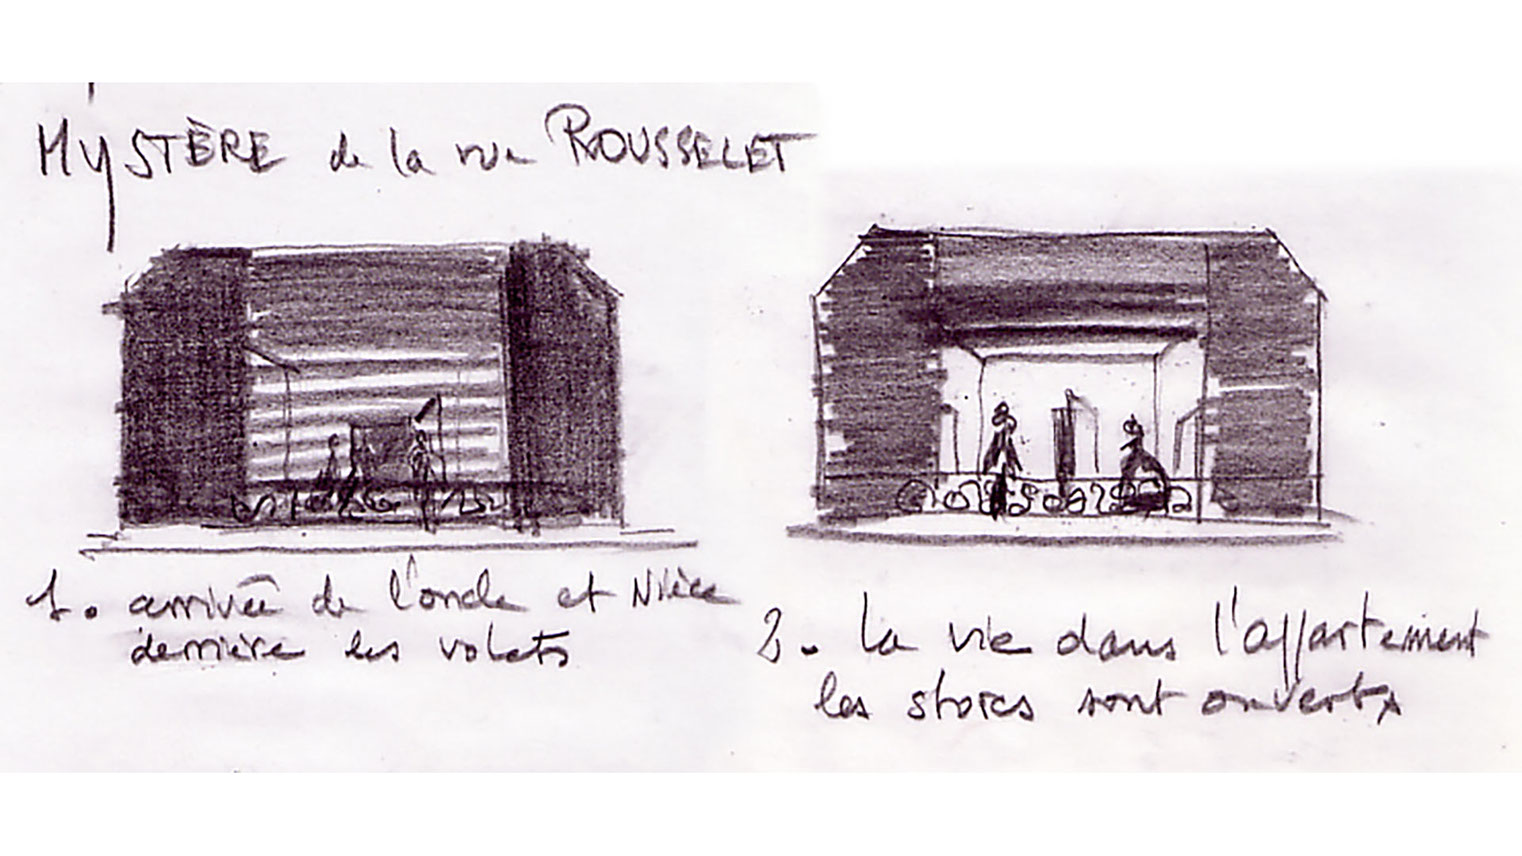 MYSTÈRE de la rue ROUSSELET
1. arrivée de l'oncle et Nièce
derrière les volets
2. la vie dans l'appartement
les stores sont ouverts